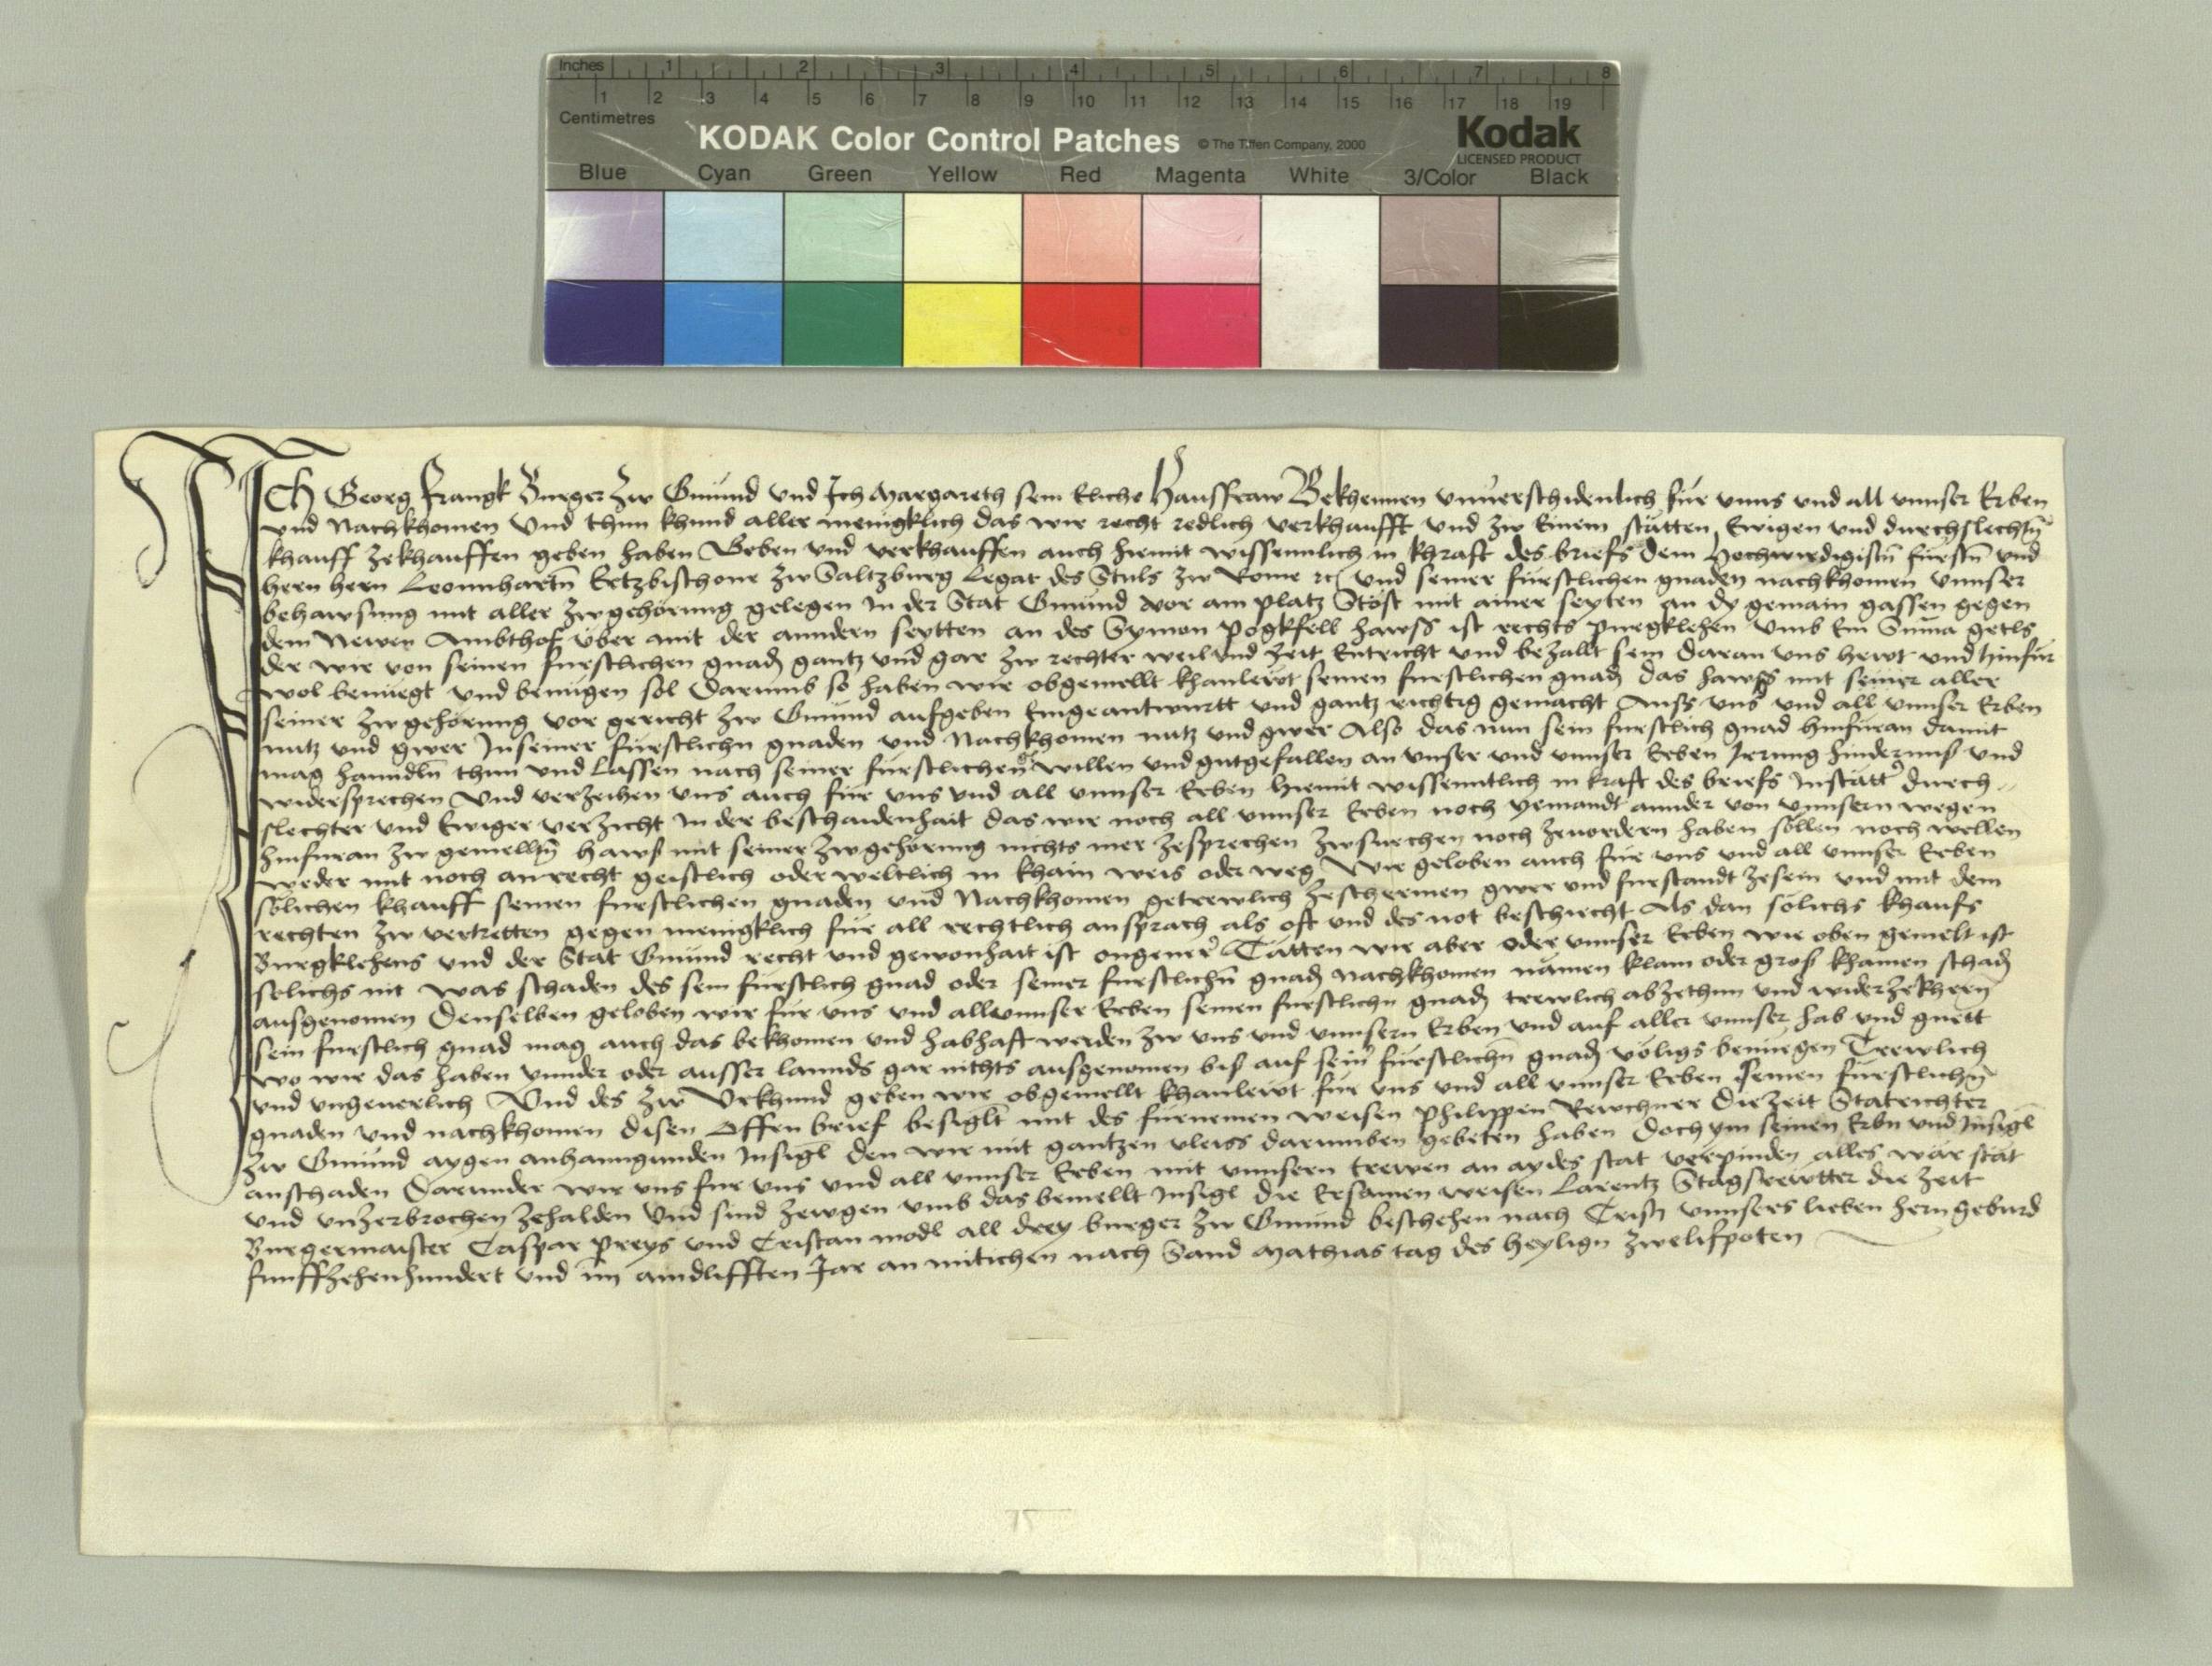 Inches 1 2 3 4 5 6 7 8
1 2 3 4 5 6 7 8 9 10 11 12 13 14 15 16 17 18 19
Centimetres
KODAK Color Control Patches © The Tiffen Company, 2000 Kodak
LICENSED PRODUCT
Blue Cyan Green Yellow Red Magenta White 3/Color Black
Ich Georg Frangk Burger zw Gmünd vnd Ich Margareth sein Eliche Hausfraw Bekhennen vnuerschidenlich für vnns vnd all vnnser Erben
vnd Nachkhomen Vnd thun khund aller menigklich das wir recht redlich verkhaufft vnd zw Einem stätten Ewigen vnd durchslechtn̄
khauff zekhauffen geben haben Geben vnd verkhauffen auch hiemit wissenntlich in khraft des briefs dem Hochwirdigistn̄ fürstn̄ vnd
hern hern Leonnhartn̄ Ertzbischoue zw Saltzburg Legat des Stuls zw Rome ꝛc vnd seiner fürstlichen gnaden nachkhomen vnnser
behawsung mit aller zwgehörung gelegen In der Stat Gmünd vor am platz Stöst mit ainer seyten an dy gemain gassen gegen
dem Newen Ambthof über mit der anndern seytten an des Symon pogkfell hawss ist rechts purgklehen vmb Ein Suma gelts
der wir von seinen fürstlichen gnadn̄ gantz vnd gar zw rechter weil vnd zeit Entricht vnd bezallt sein daran vns hewt vnd hinfür
wol benüegt vnd benügen sol Darumb so haben wir obgemellt khanlewt seinen fürstlichen gnadn̄ das hawss mit seiner aller
seiner zwgehörung vor gericht zw Gmünd aufgeben Eingeantwurtt vnd gantz richtig gemacht Auss vns vnd all vnnser Erben
nutz vnd gwer In seiner fürstlichn gnaden vnd Nachkhomen nutz vnd gwer Also das nun sein fürstlich gnad hinfüran damit
mag hanndln̄ thun vnd Lassen nach seiner fürstlichen gn willen vnd gutgefallen an vnser vnd vnnser Erben Irrung hindernuß vnd
widersprechen Vnd verzeihen vns auch für vns vnd all vnnser Erben hiemit wissenntlich in kraft des briefs In stätt durch
slechter vnd Ewiger verzicht In der beschaidenhait das wir noch all vnnser Erben noch yemandt annder von vnnsern wegen
hinfüran zw gemelltn̄ hawß mit seiner zwgehörung nichts mer zesprechen zwsuechen noch zeuordern haben söllen noch wellen
weder mit noch an recht geistlich oder weltlich in khain weis oder weg Wir geloben auch für vns vnd all vnnser Erben
sölichen khauff seinen fürstlichen gnaden vnd Nachkhomen getrewlich zeschermen gwer vnd fürstandt zesein vnd mit dem
rechten zw vertretten gegen menigklich für all rechtlich ansprach als oft vnd des not beschiecht Als dan sölichs khaufs
Burgklehens vnd der Stat Gmünd recht vnd gewonhait ist ongeuer Tätten wir aber oder vnnser Erben wie oben gemelt ist
sölichs nit was schaden des sein fürstlich gnad oder seiner fürstlichn̄ gnadn̄ nachkhomen nämen klain oder groß khainen schadn̄
ausgenomen Denselben geloben wir für vns vnd all vnnser Erben seinen fürstlichn gnadn̄ trewlich abzethun vnd widerzekhern̄
sein fürstlich gnad mag auch das bekhomen vnd habhaft werden zw vns vnd vnnsern Erben vnd auf aller vnnser hab vnd guett
wo wir das haben ynnder oder ausser lannds gar nichts ausgenomen biß auf seinr fürstlichn̄ gnadn̄ völigs benüegen Trewlich
vnd vngeuerlich Vnd des zw Vrkhund geben wir obgemellt khanlewt für vns vnd all vnnser Erben seinen fürstlichn̄
gnaden vnd nachkhomen disen Offen brief besiglt mit des fürnemen weisen philippen Rewchner die zeit Statrichter
zw Gmünd aygen anhanngunden Insigl den wir mit gantzen vleiss darumben gebeten haben doch ym seinen Erbn vnd Insigl
anschaden Darunder wir vns für vns vnd all vnnser Erben mit vnnsern trewen an aydes stat verpinden alles war stät
vnd vnzerbrochen zehalden Vnd sind zewgen vmb das bemellt Insigl die Ersamen weisen Larentz Stagsrewtter die zeit
Burgermaister Caspar preys vnd Cristan modl all drey burger zw Gmünd beschehen nach Cristi vnnsers lieben hern geburd
funffzehenhundert vnd im aindlifften Jar an mitichen nach Sand Mathias tag des heylign zwelifpoten